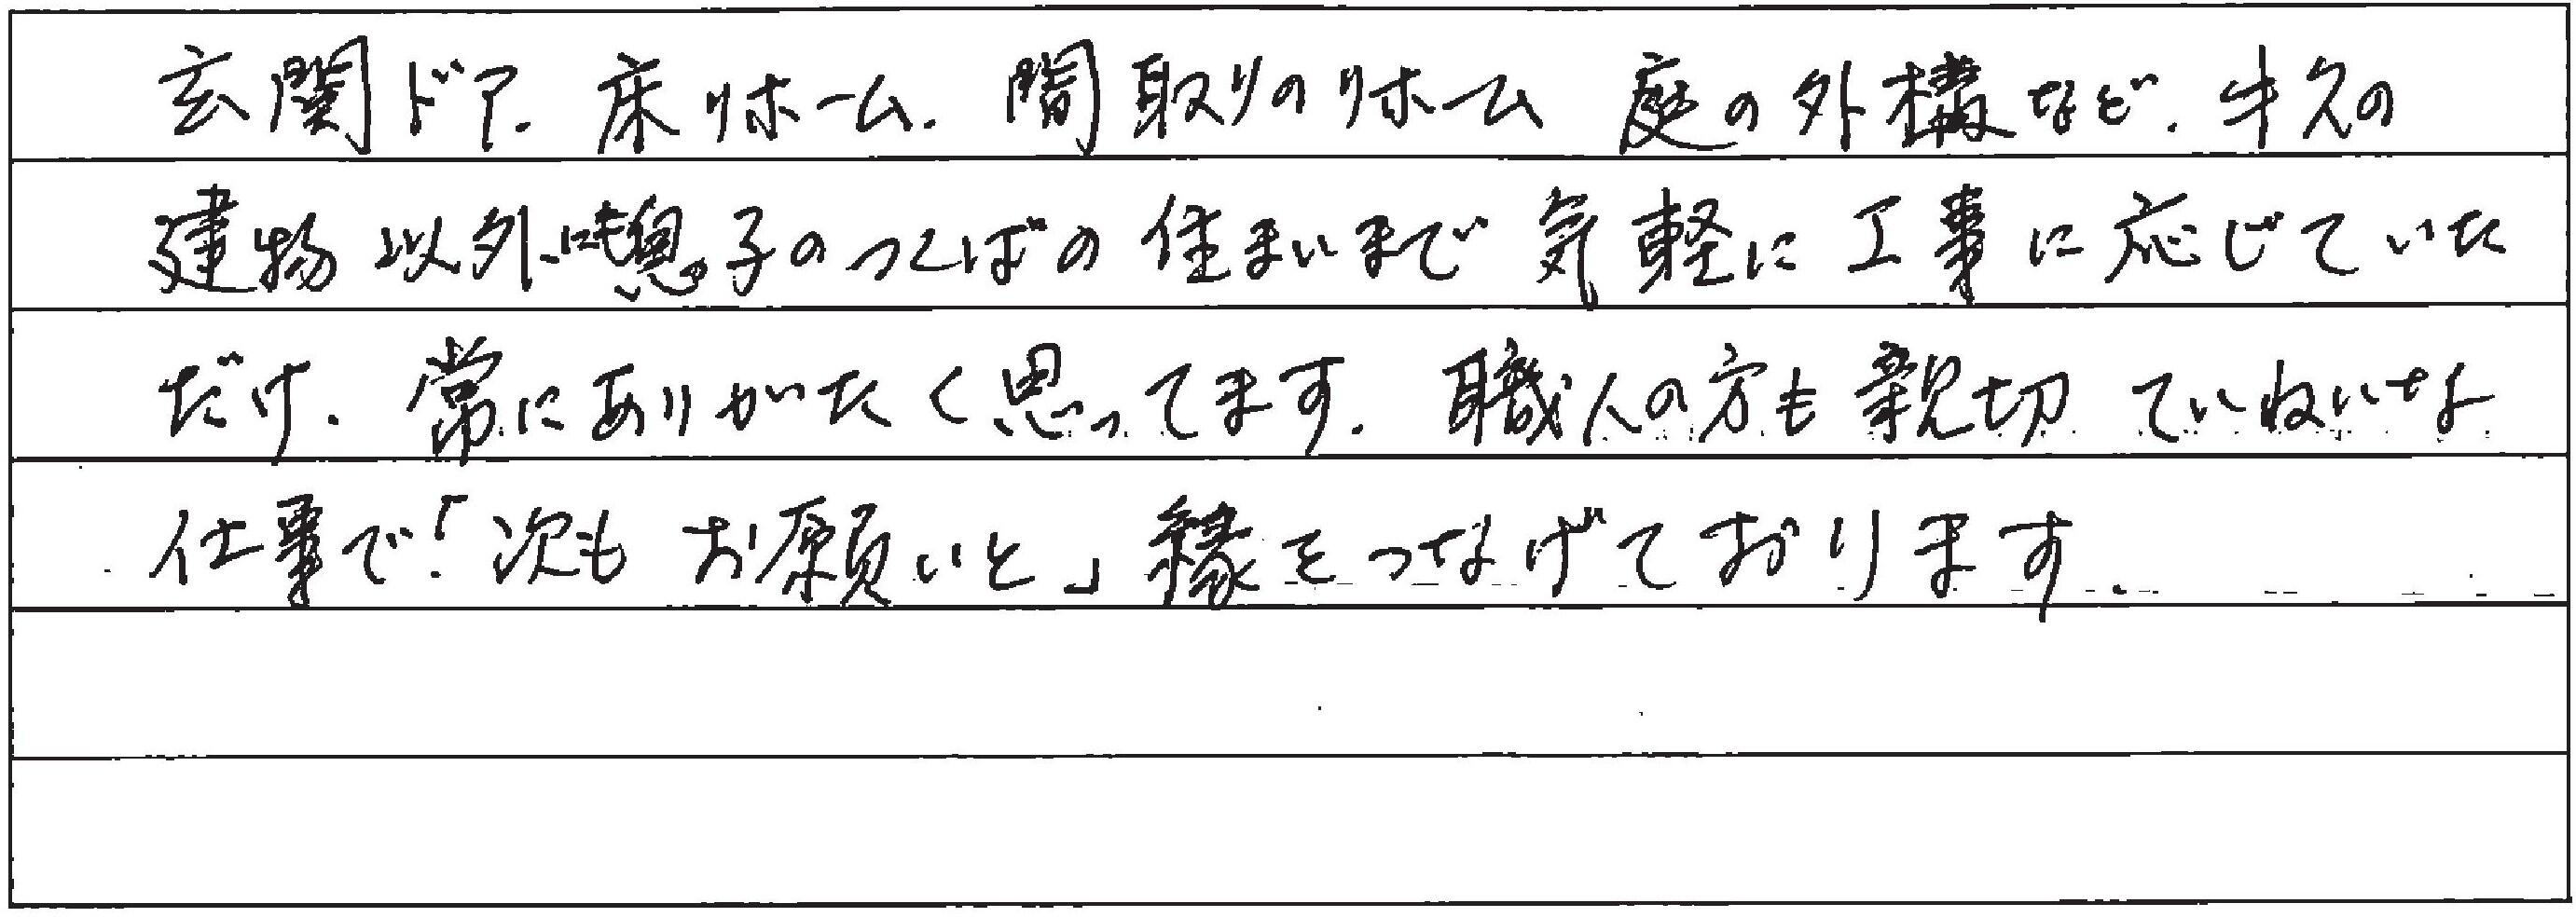 玄関ドア、床リホーム、間取りのリホーム 庭の外構など、牛久の
建物以外にも息子のつくばの住まいまで気軽に工事に応じていた
だけ、常にありがたく思ってます。職人の方も親切 ていねいな
仕事で「次もお願いと」縁をつなげております。